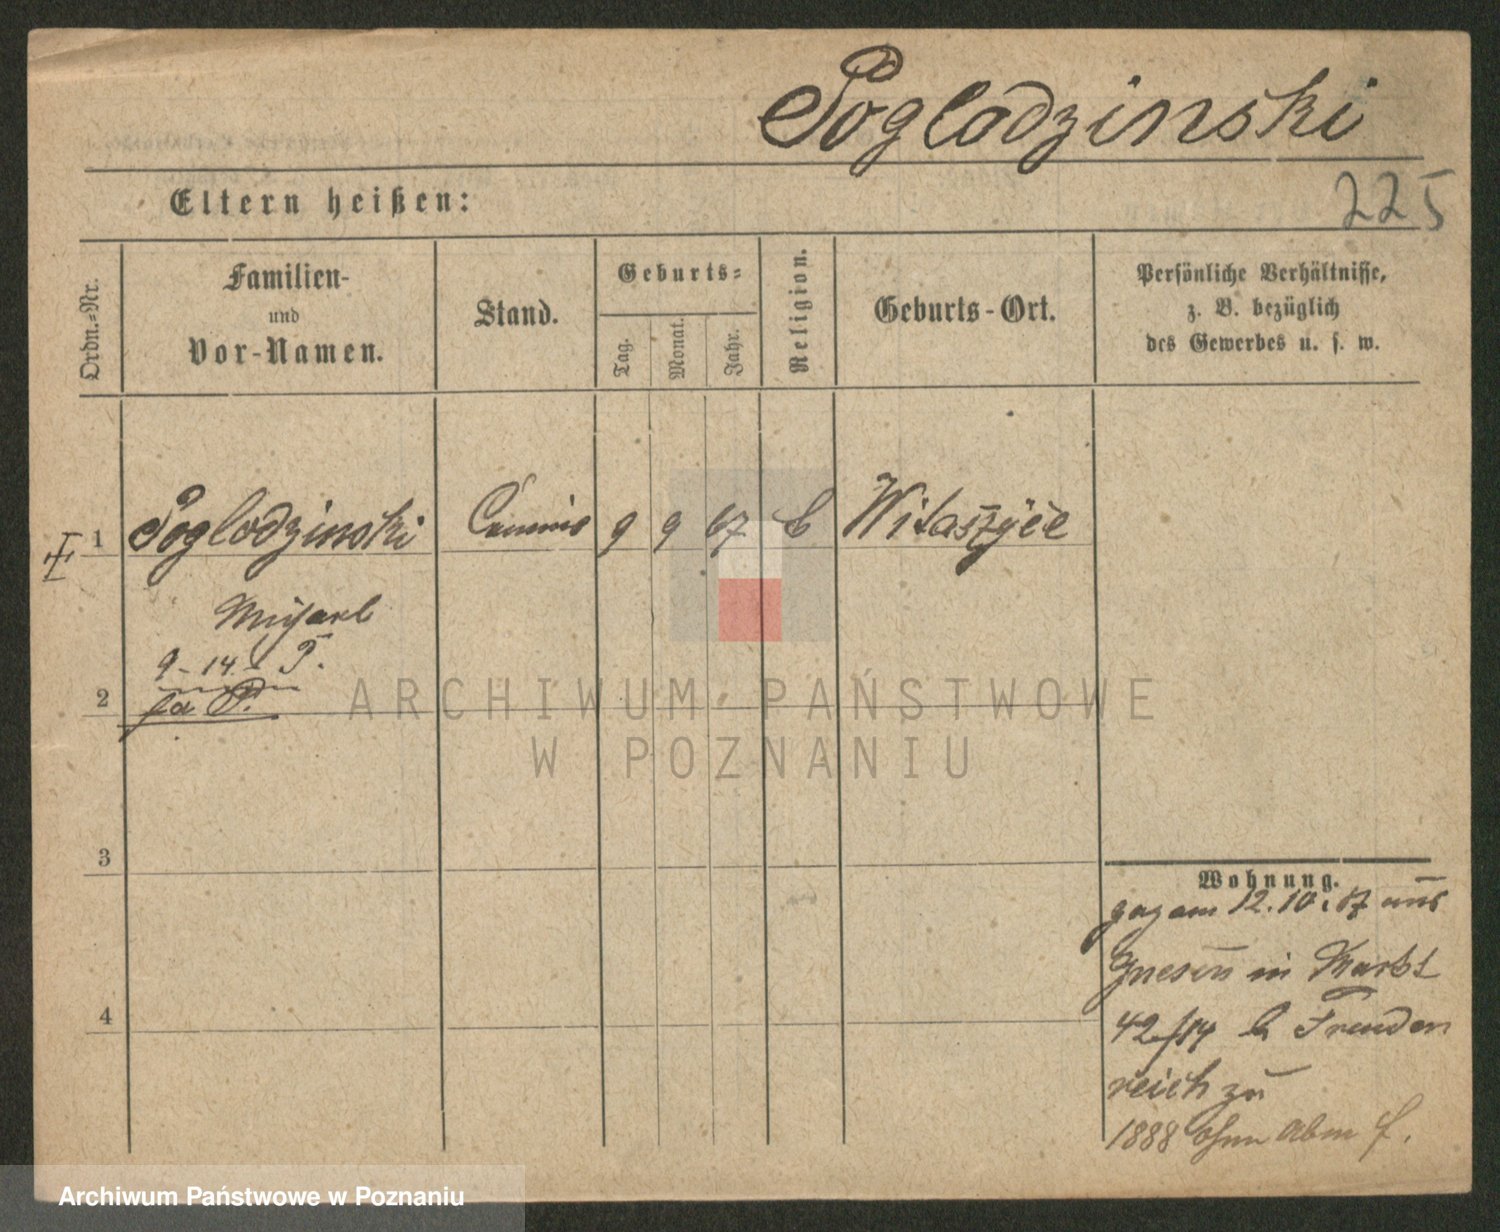 Poglodzinski
Eltern heißen:
225
Ordn.-Nr.
Familien-
und
Vor-Namen.
Stand.
Geburts-
Tag.
Monat.
Jahr.
Religion.
Geburts-Ort.
Persönliche Verhältnisse,
z. B. bezüglich
des Gewerbes u. s. w.
1 Poglodzinski Commis 9 9 67 Witaszyce
Michael
9-14-
2
ARCHIWUM PAŃSTWOWE
W POZNANIU
3
4
Wohnung.
zog am 12.10.87 aus
Gnesen in Markt
42/14 b Freuden
reich zu
1888 ohne Abm
Archiwum Państwowe w Poznaniu